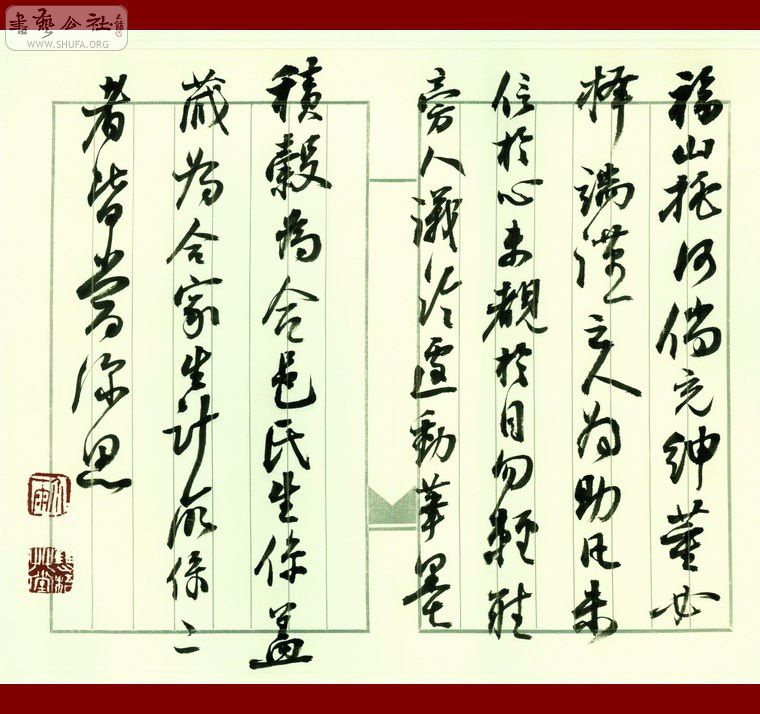 書藝公社
WWW.SHUFA.ORG
山何倘充紳董必
擇端謹之人為助凡未
信於心未覩於目勿輕聽
旁人議論遽動筆墨
積穀為合邑民生保蓋
藏為合家生計保二
者皆當深思